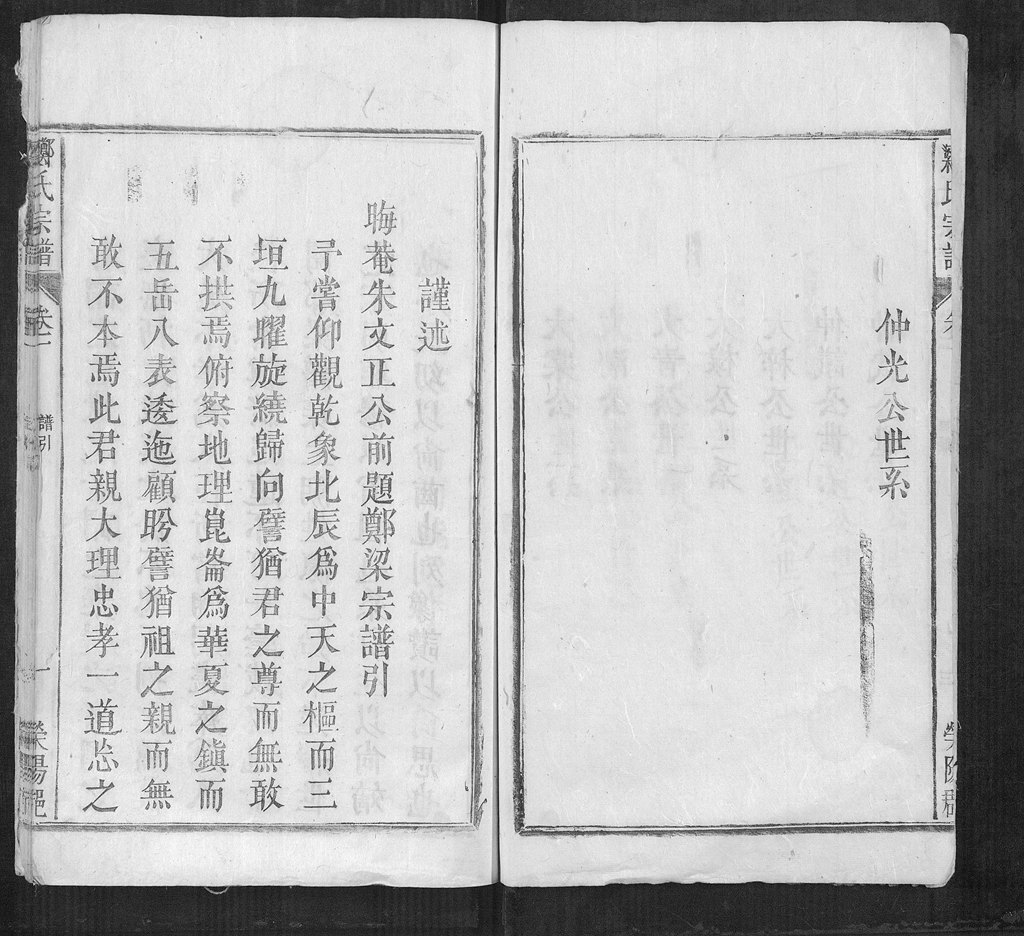 仲光公世系
謹述
晦菴朱文正公前題鄭梁宗譜引
予嘗仰觀乾象北辰爲中天之樞而三
垣九曜旋繞歸向譬猶君之尊而無敢
不拱焉俯察地理崑崙爲華夏之鎮而
五岳八表逶迤顧盼譬猶祖之親而無
敢不本焉此君親大理忠孝一道忩之
鄭氏宗譜
卷一
譜引
一